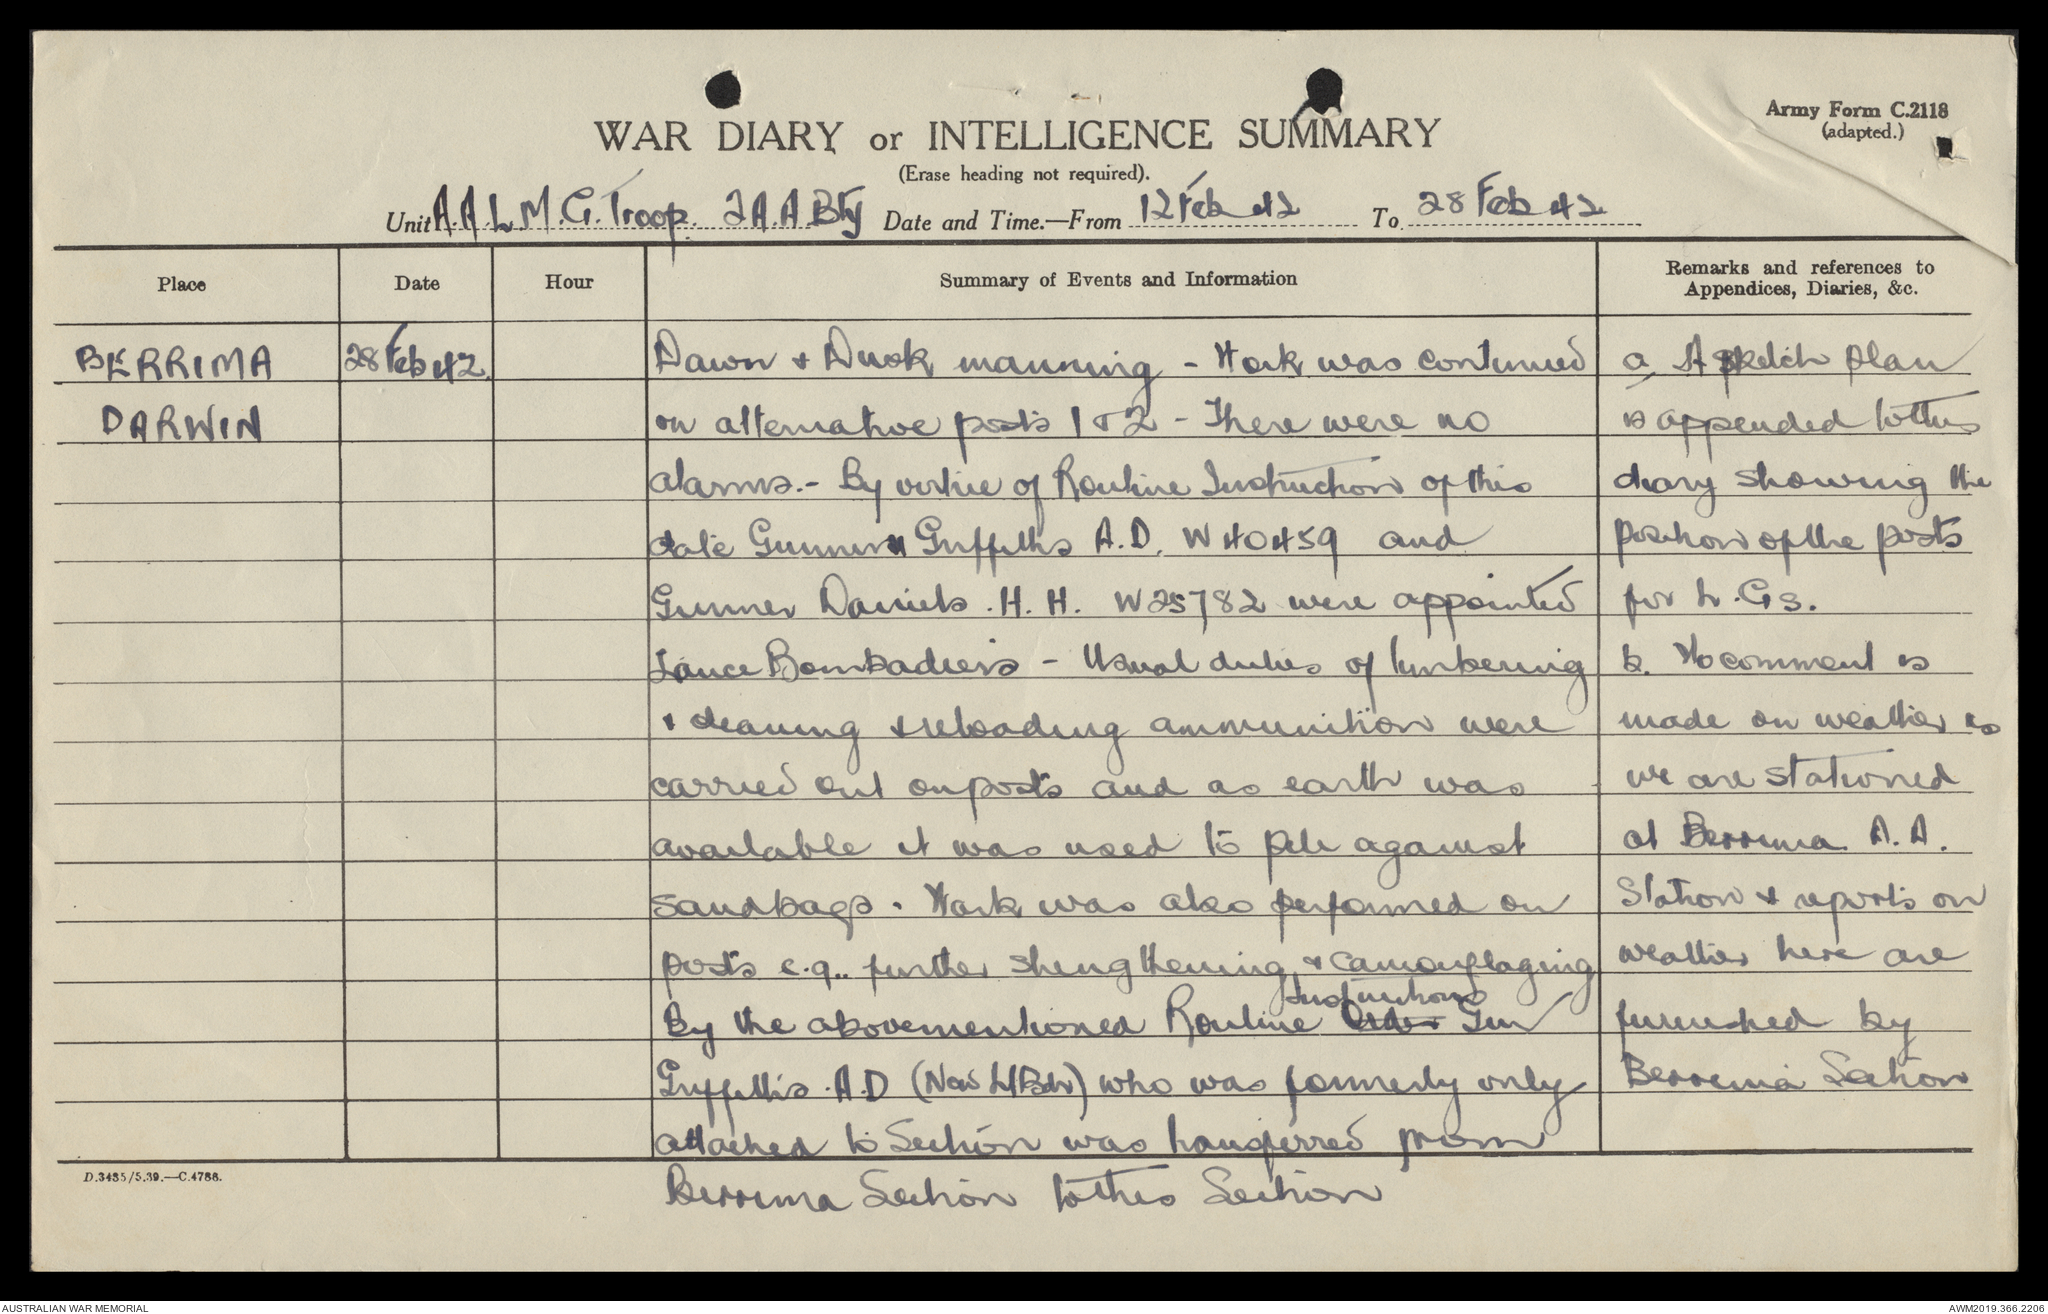 Army Form C.2118
(adapted.)
WAR DIARY or INTELLIGENCE SUMMARY
(Erase heading not required).
Unit A.A.L.M.G. Troop. 2 A.A. Bty Date and Time.—From 12 Feb 42 To 28 Feb 42
Place Date Hour Summary of Events and Information Remarks and references to
Appendices, Diaries, &c.
BERRIMA 28 Feb 42.
DARWIN
Dawn & Dusk manning - Work was continued
on alternative posts 1 & 2 - There were no
alarms. - By virtue of Routine Instruction of this
date Gunner Griffiths A.D. W40459 and
Gunner Daniels .H.H. W25782 were appointed
Lance Bombadiers - Usual duties of limbering
& cleaning & reloading ammunition were
carried out on posts and as earth was
available it was used to pile against
sandbags. Work was also performed on
posts e.g.. further strengthening & camouflaging
By the abovementioned Routine Order Instructions Gnr
Griffiths .A.D (Now L/Bdr) who was formerly only
attached to Section was transferred from
Berrima Section to this Section
a, A sketch plan
is appended to this
diary showing the
position of the posts
for L.Gs.
b. No comment is
made on weather as
we are stationed
at Berrima A.A.
Station & reports on
weather here are
furnished by
Berrima Section
D.3485/5.39.—C.4788.
AUSTRALIAN WAR MEMORIAL
AWM2019.366.2206